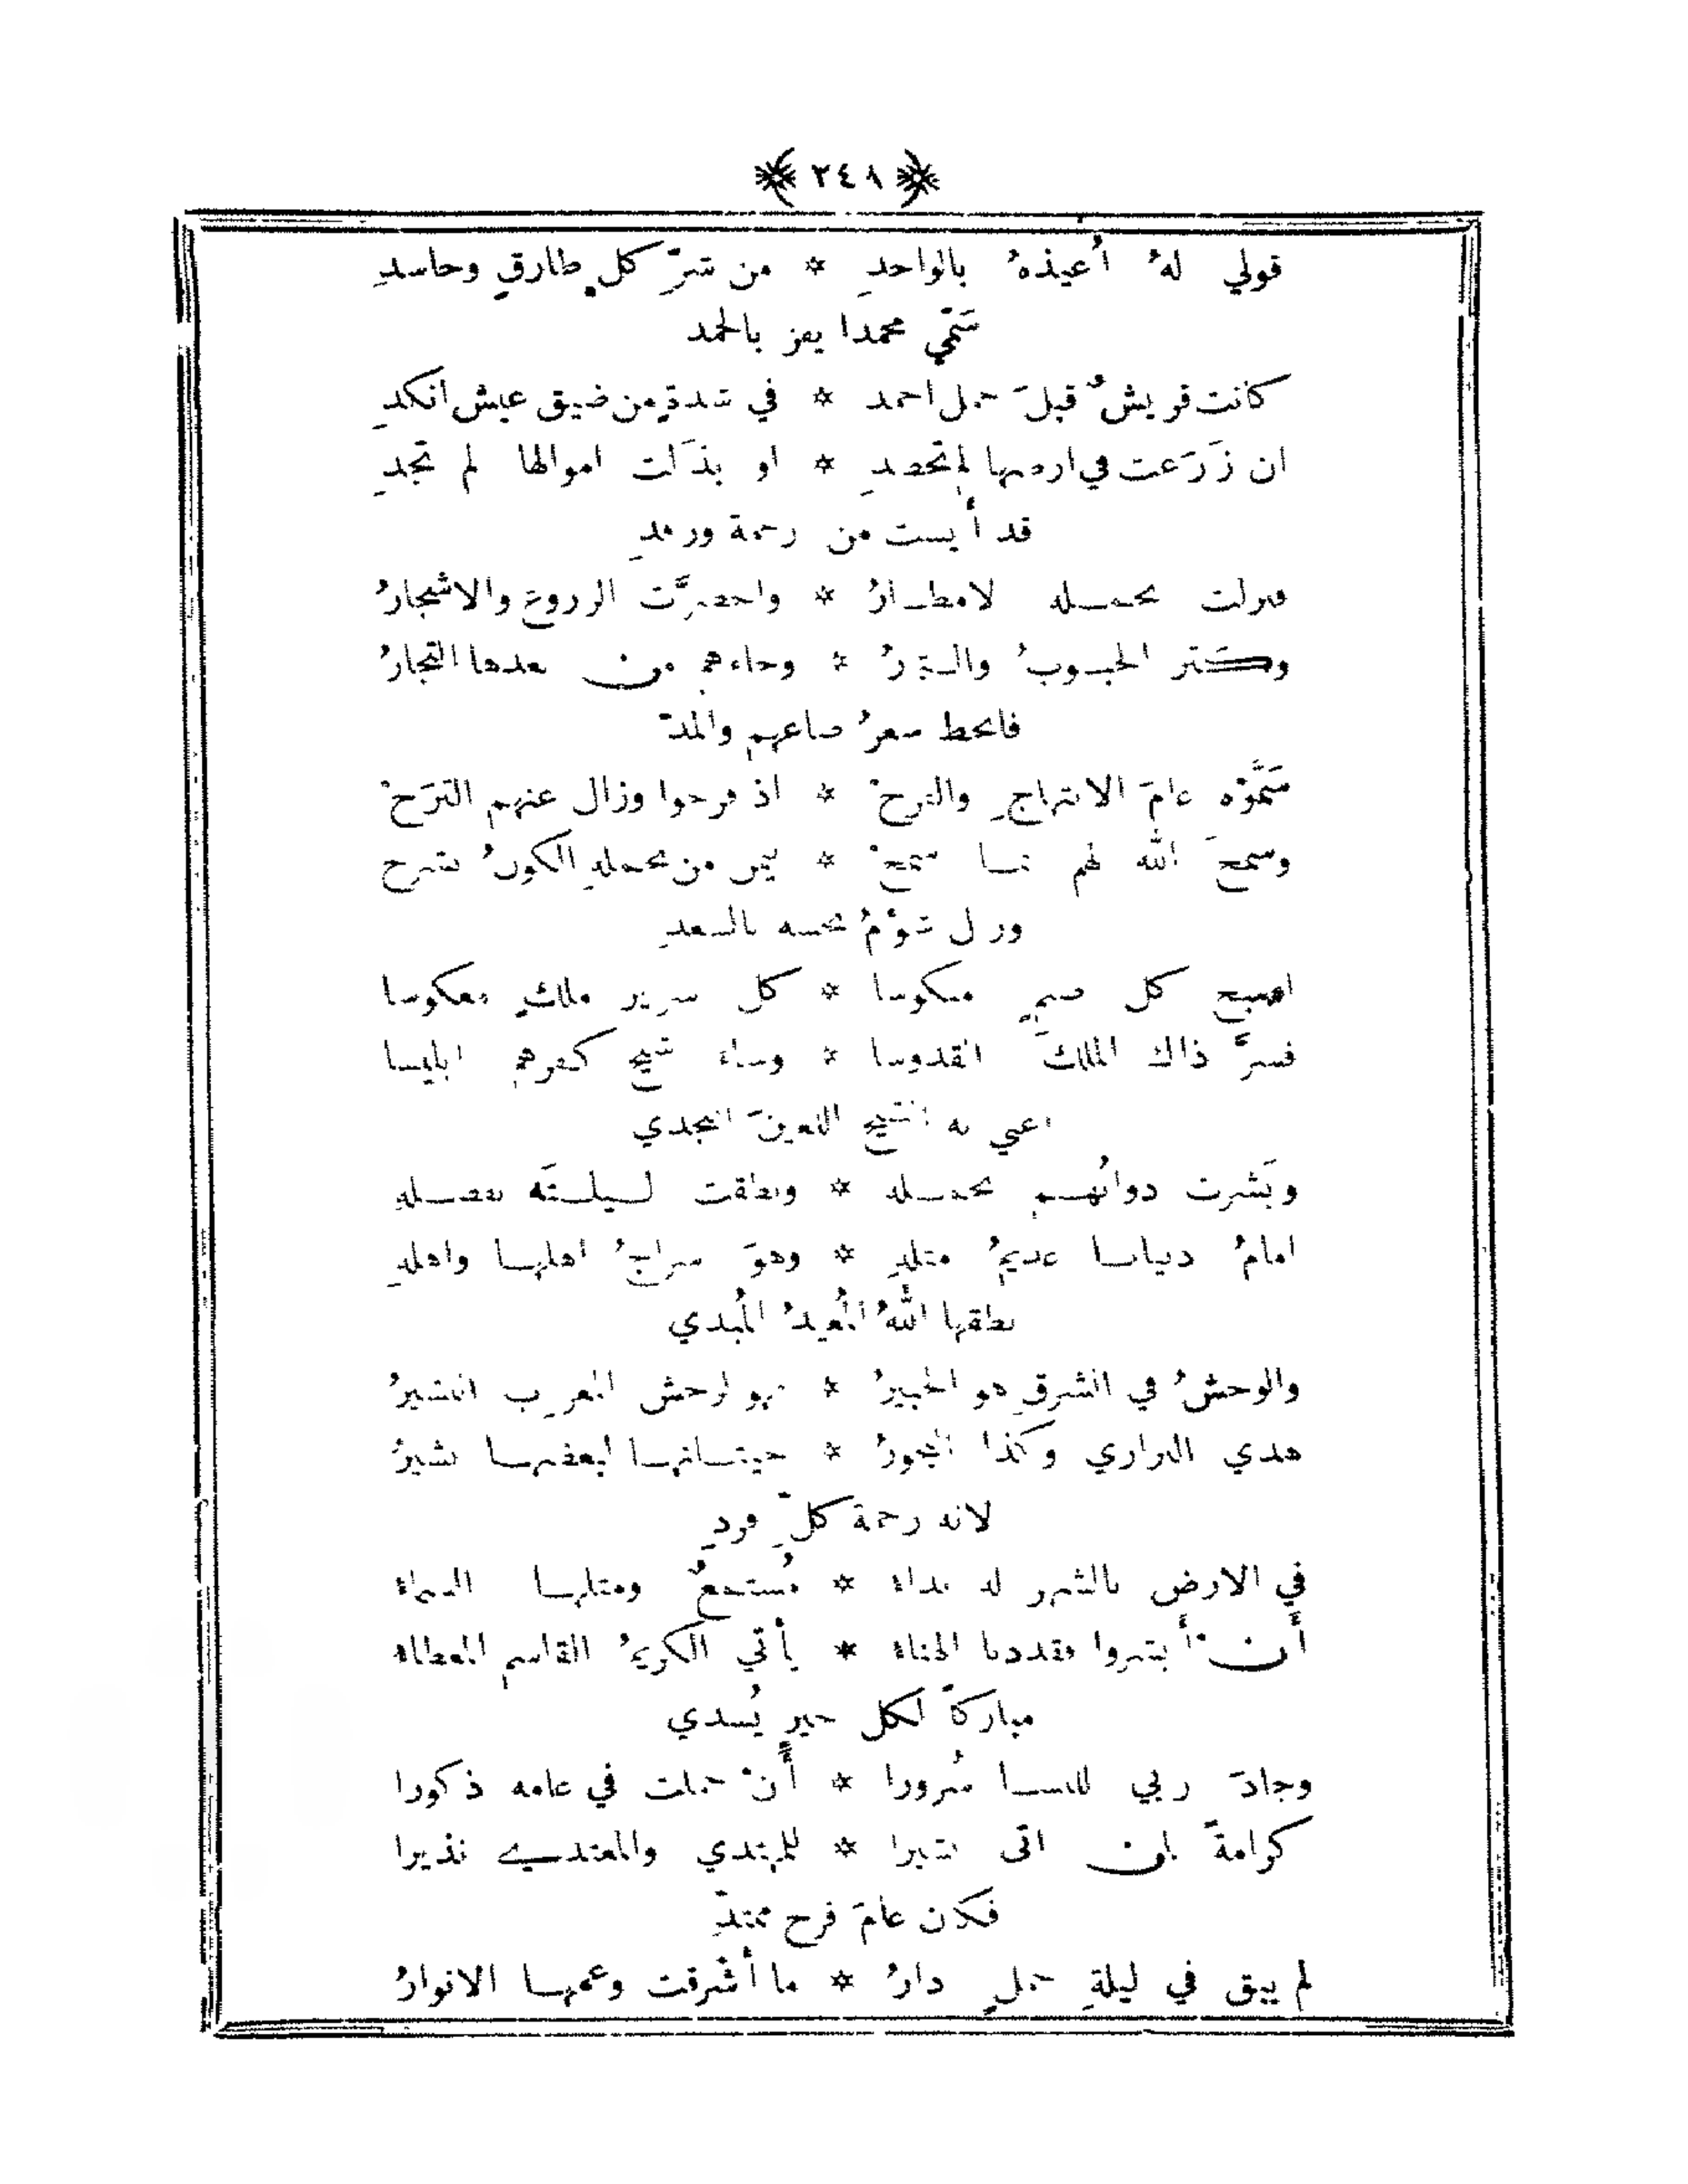 ﴿ ٢٤٨ ﴾
قولي لهُ أُعيذهُ بالواحدِ * من شرِّ كلِ طارقٍ وحاسدِ
سَمّي محمدا يفز بالحمد
كانت قريشٌ قبلَ حمل احمد * في شدةٍ من ضيق عيش انكدِ
ان زَرَعت في ارضها لم تحصدِ * او بذَلت اموالها لم تجدِ
قد أيست من رحمة ورفدِ
فنزلت بحمله الامطارُ * واخضرَّت الزروع والاشجارُ
وكَثر الحبوبُ والثمارُ * وجاءهم من بعدها التجارُ
فانحط سعرُ صاعهم والمدّ
سَمَّوْه عامَ الابتهاجِ والفرحْ * اذ فرحوا وزال عنهم الترَحْ
وسمحَ الله لهم بما سمحْ * بيمن من بحملهِ الكونُ انشرح
وزال شؤمُ نحسه بالسعدِ
اصبح كل صنمٍ منكوسا * كل سرير ملكٍ معكوسا
فسرَّ ذاك الملكَ القدوسا * وساء شيخ كفرهم ابليسا
اعني به الشيخ اللعينَ النجدي
وبَشرت دوابُهم بحمله * ونطقت ليلتَه بفضلهِ
امامُ دنيانا عديمُ مثلهِ * وهوَ سراجُ اهلها واهلهِ
نطقها اللهُ المُعيدُ المُبدي
والوحشُ في الشرقِ هو الخبيرُ * فهو لوحش المغرب البشيرُ
هذي البراري وكذا البحورُ * حيتانها لبعضها بشيرُ
لانه رحمة كلِّ فردِ
في الارض بالشهر له نداءُ * مُستمعٌ ومثلها السماءُ
أَن أبشروا فقد دنا الهناءُ * يأتي الكريمُ القاسم المعطاء
مباركاً لكل خيرٍ يُسدي
وجادَ ربي للنسا سُرورا * أَنْ حملت في عامه ذكورا
كرامةً لمن اتى بشيرا * للمهتدي والمعتدي نذيرا
فكان عامَ فرح ممتدِّ
لم يبق في ليلةِ حملٍ دارُ * ما أشرقت وعمها الانوارُ